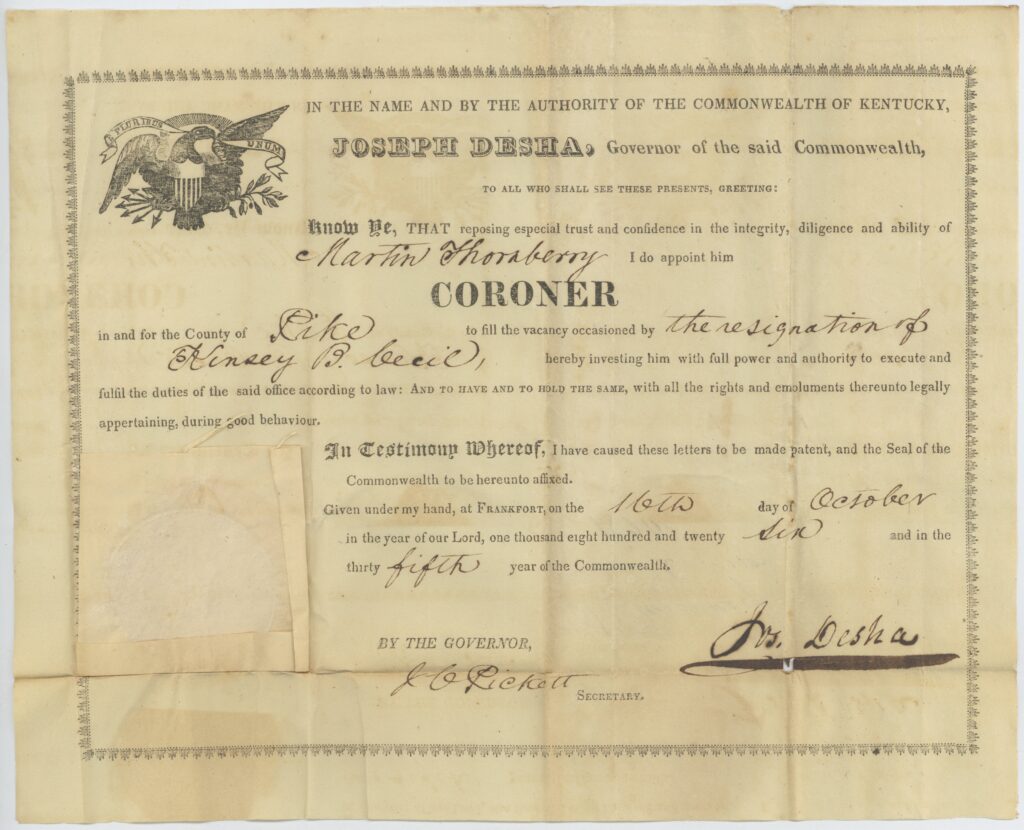 E PLURIBUS UNUM
IN THE NAME AND BY THE AUTHORITY OF THE COMMONWEALTH OF KENTUCKY,
JOSEPH DESHA, Governor of the said Commonwealth,
TO ALL WHO SHALL SEE THESE PRESENTS, GREETING:
Know Ye, THAT reposing especial trust and confidence in the integrity, diligence and ability of
Martin Thornberry I do appoint him
CORONER
in and for the County of Pike to fill the vacancy occasioned by the resignation of
Kinsey B. Cecil, hereby investing him with full power and authority to execute and
fulfil the duties of the said office according to law: AND TO HAVE AND TO HOLD THE SAME, with all the rights and emoluments thereunto legally
appertaining, during good behaviour.
In Testimony Whereof, I have caused these letters to be made patent, and the Seal of the
Commonwealth to be hereunto affixed.
Given under my hand, at FRANKFORT, on the 16th day of October
in the year of our Lord, one thousand eight hundred and twenty six and in the
thirty fifth year of the Commonwealth.
Jos. Desha
BY THE GOVERNOR,
J C Pickett
SECRETARY.